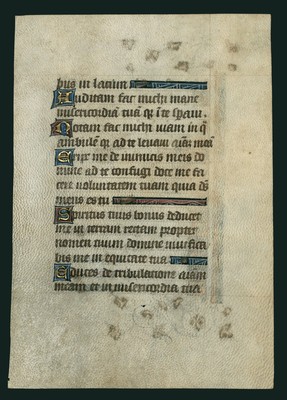 bus in lacum
Auditam fac michi mane
misericordiã tuã qr ĩ te spaui.
Notam fac michi uiam in q̃
ambulẽ qr ad te leuaui aĩam meã
Eripe me de inimicis meis do
mine ad te confugi doce me fa
cere uoluntatem tuam quia ds̃
meus es tu
Spiritus tuus bonus deducet
me in terram rectam propter
nomen tuum domine uiuifica
bis me in equitate tua
Educes de tribulatione aĩam
meam et in misericordia tua